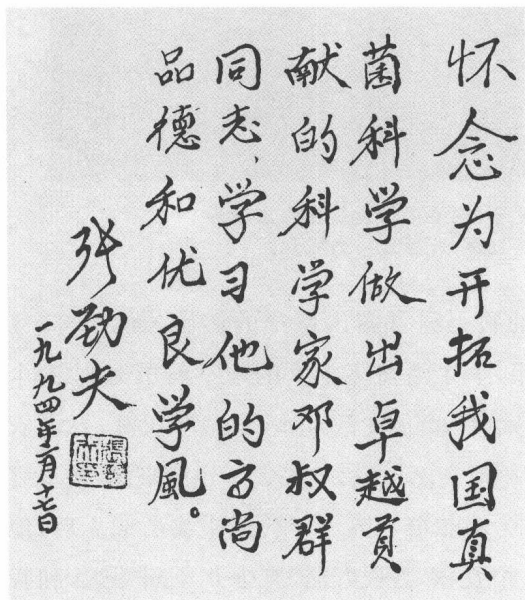 怀念为开拓我国真
菌科学做出卓越贡
献的科学家邓叔群
同志、学习他的高尚
品德和优良学风。
张劲夫
一九九四年二月十七日